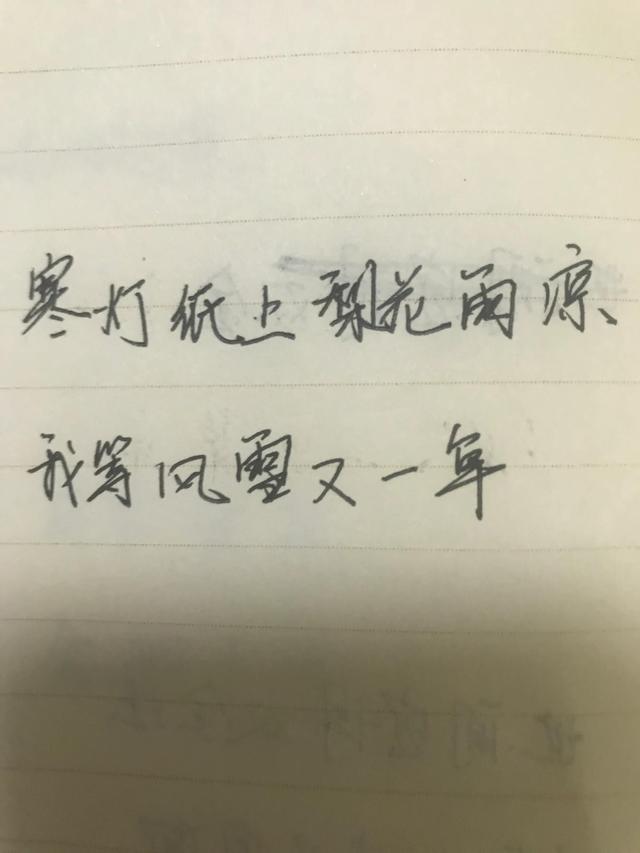 寒灯纸上梨花雨凉、
我等风雪又一年